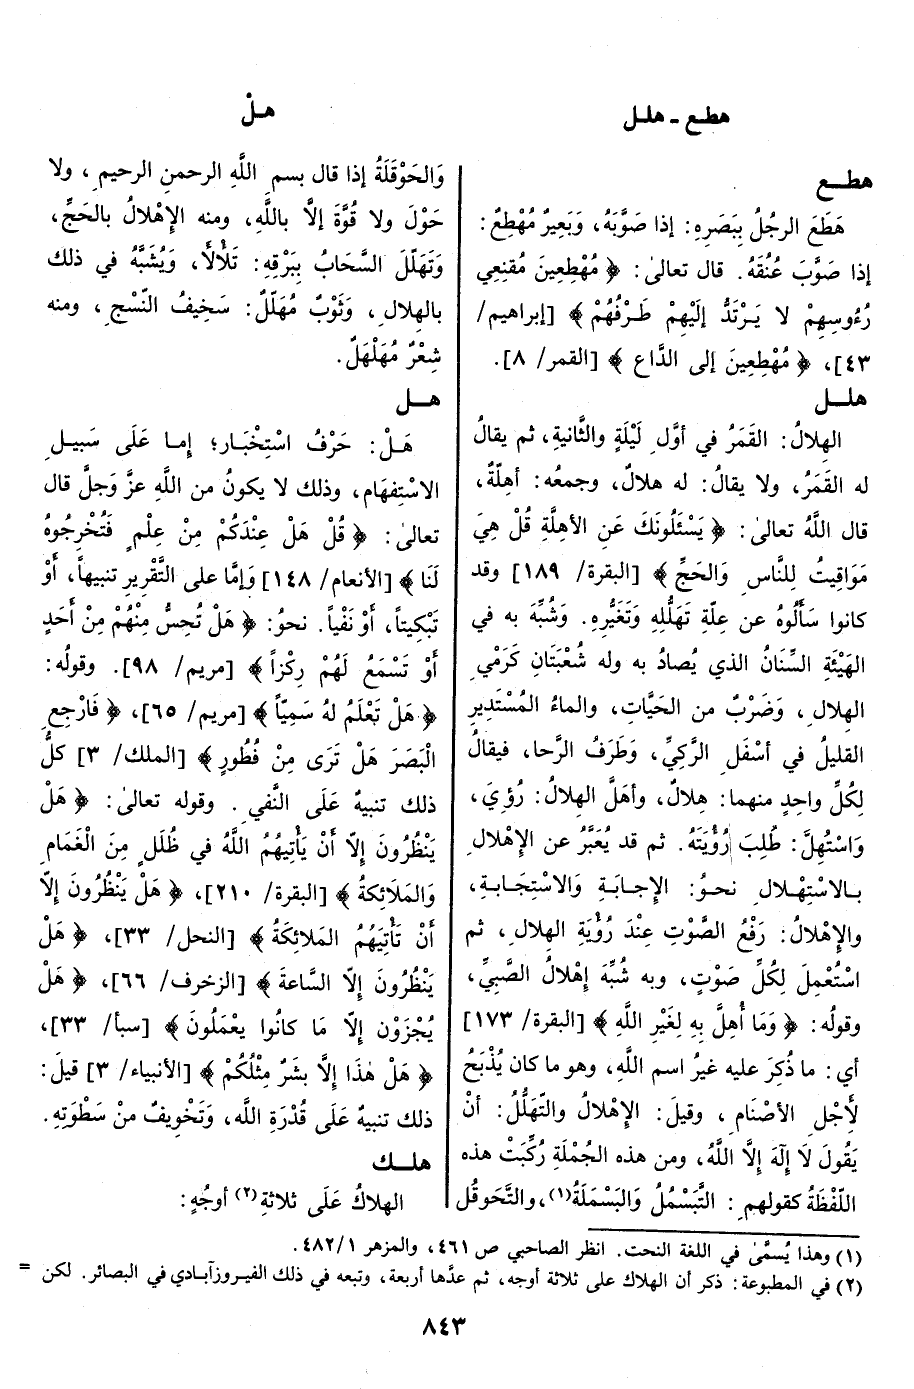 هطـع - هلـل
هـلْ
هطـع
هَطَعَ الرجُلُ بِبَصَرِهِ: إذا صَوَّبَهُ، وَبَعِيرٌ مُهْطِعٌ:
إذا صَوَّبَ عُنُقَهُ. قال تعالىٰ: ﴿ مُهْطِعِينَ مُقنِعِي
رُءُوسِهِمْ لا يَـرْتَدُّ إلَيْهِمْ طَـرْفُهُمْ ﴾ [إبراهيم/
٤٣]، ﴿ مُهْطِعِينَ إلى الدَّاعِ ﴾ [القمر/ ٨].
هلـل
الهلالُ: القَمَرُ في أوَّلِ لَيْلَةٍ والثَّانيةِ، ثم يقالُ
له القَمَرُ، ولا يقالُ: له هلالٌ، وجمعُه: أهِلَّةٌ،
قال اللَّهُ تعالىٰ: ﴿ يَسْئَلُونَكَ عَنِ الأهِلَّةِ قُلْ هِيَ
مَوَاقِيتُ لِلنَّاسِ وَالحَجِّ ﴾ [البقرة/ ١٨٩] وقد
كانوا سَأَلُوهُ عن عِلَّةِ تَهَلُّلِهِ وَتَغَيُّرِهِ. وَشُبِّهَ به في
الهَيْئَةِ السِّنَانُ الذي يُصادُ به وله شُعْبَتَانِ كَرَمْيِ
الهلالِ، وَضَرْبٌ من الحَيَّاتِ، والماءُ المُسْتَدِير
القليلُ في أسْفَلِ الرَّكِيِّ، وَطَرَفُ الرَّحا، فيقالُ
لِكُلِّ واحِدٍ منهما: هِلالٌ، وأهَلَّ الهلالُ: رُؤِيَ،
وَاسْتَهِلَّ: طُلِبَ رُؤْيَتَهُ. ثم قد يُعَبَّرُ عن الإهْلالِ
بـالاسْتِهْـلالِ نحـوُ: الإجـابَـةِ وَالاسْتِجَـابـةِ،
والإهْلالُ: رَفْعُ الصَّوْتِ عِنْدَ رُؤْيَةِ الهلالِ، ثم
اسْتُعْمِلَ لِكُلِّ صَوْتٍ، وبه شُبِّهَ إهْلالُ الصَّبيِّ،
وقولُه: ﴿ وَمَا أُهِلَّ بِهِ لِغَيْرِ اللَّهِ ﴾ [البقرة/ ١٧٣]
أي: ما ذُكِرَ عليه غيرُ اسم اللَّهِ، وهو ما كان يُذْبَحُ
لأَجْلِ الأصْنَامِ، وقيلَ: الإهْلالُ والتَّهَلُّلُ: أنْ
يَقُولَ لَا إلَهَ إلَّا اللَّهُ، ومن هذه الجُمْلَةِ رُكِّبَتْ هذه
اللَّفْظَةُ كقولهمِ: التَّبَسْمُلُ وَالبَسْمَلَةُ(١)، والتَّحَوقُل
وَالحَوْقَلَةُ إذا قال بسم اللَّهِ الرحمنِ الرحيمِ، ولا
حَوْلَ ولا قُوَّةَ إلاَّ باللَّهِ، ومنه الإهْلالُ بالحَجِّ،
وَتَهَلَّلَ السَّحَابُ بِبَرْقِهِ: تَلَأْلَأَ، وَيُشَبَّهُ في ذلك
بالهِلالِ، وَثَوْبٌ مُهَلَّلٌ: سَخِيفُ النَّسْجِ، ومنه
شِعْرٌ مُهَلْهَلٌ.
هـل
هَـلْ: حَرْفُ اسْتِخْبَـار؛ إمـا عَلَى سَبيـلِ
الاسْتِفهَامِ، وذلك لا يكونُ من اللَّهِ عزَّ وَجلَّ قال
تعالىٰ: ﴿ قُلْ هَلْ عِنْدَكُمْ مِنْ عِلْمٍ فَتُخْرِجُوهُ
لَنَا ﴾ [الأنعام/ ١٤٨] وَإمَّا على التَّقْرِيرِ تنبيهاً، أَوْ
تَبْكِيتاً، أَوْ نَفْياً. نحوُ: ﴿ هَلْ تُحِسُّ مِنْهُمْ مِنْ أَحَدٍ
أَوْ تَسْمَعُ لَهُمْ رِكْزاً ﴾ [مريم/ ٩٨]. وقولُه:
﴿ هَلْ تَعْلَمُ لهُ سَمِيّاً ﴾ [مريم/ ٦٥]، ﴿ فَارْجِعِ
الْبَصَرَ هَلْ تَرَى مِنْ فُطُورٍ ﴾ [الملك/ ٣] كلُّ
ذلك تنبيهٌ عَلَى النَّفيِ. وقوله تعالىٰ: ﴿ هَلْ
يَنْظُرُونَ إلاَّ أَنْ يَأْتِيَهُمُ اللَّهُ في ظُلَلٍ مِنَ الْغَمَامِ
وَالمَلَائِكَةُ ﴾ [البقرة/ ٢١٠]، ﴿ هَلْ يَنْظُرُونَ إلاَّ
أَنْ تَأْتِيَهُمُ المَلَائِكَةُ ﴾ [النحل/ ٣٣]، ﴿ هَلْ
يَنْظُرُونَ إلاَّ السَّاعةَ ﴾ [الزخرف/ ٦٦]، ﴿ هَلْ
يُجْزَوْنَ إلاَّ مَا كانُوا يعْمَلُونَ ﴾ [سبأ/ ٣٣]،
﴿ هَلْ هٰذَا إلَّا بشَرٌ مِثْلُكُمْ ﴾ [الأنبياء/ ٣] قيلَ:
ذلك تنبيهٌ عَلَى قُدْرَةِ اللَّه، وَتَخْوِيفٌ منْ سَطْوَتِهِ.
هلـك
الهلاكُ عَلَى ثلاثةِ(٢) أوجُهٍ:
(١) وهذا يُسمَّىٰ في اللغة النحت. انظر الصاحبي ص ٤٦١، والمزهر ٤٨٢/١.
(٢) في المطبوعة: ذكر أن الهلاك على ثلاثة أوجه، ثم عدَّها أربعة، وتبعه في ذلك الفيروزآبادي في البصائر. لكن =
٨٤٣